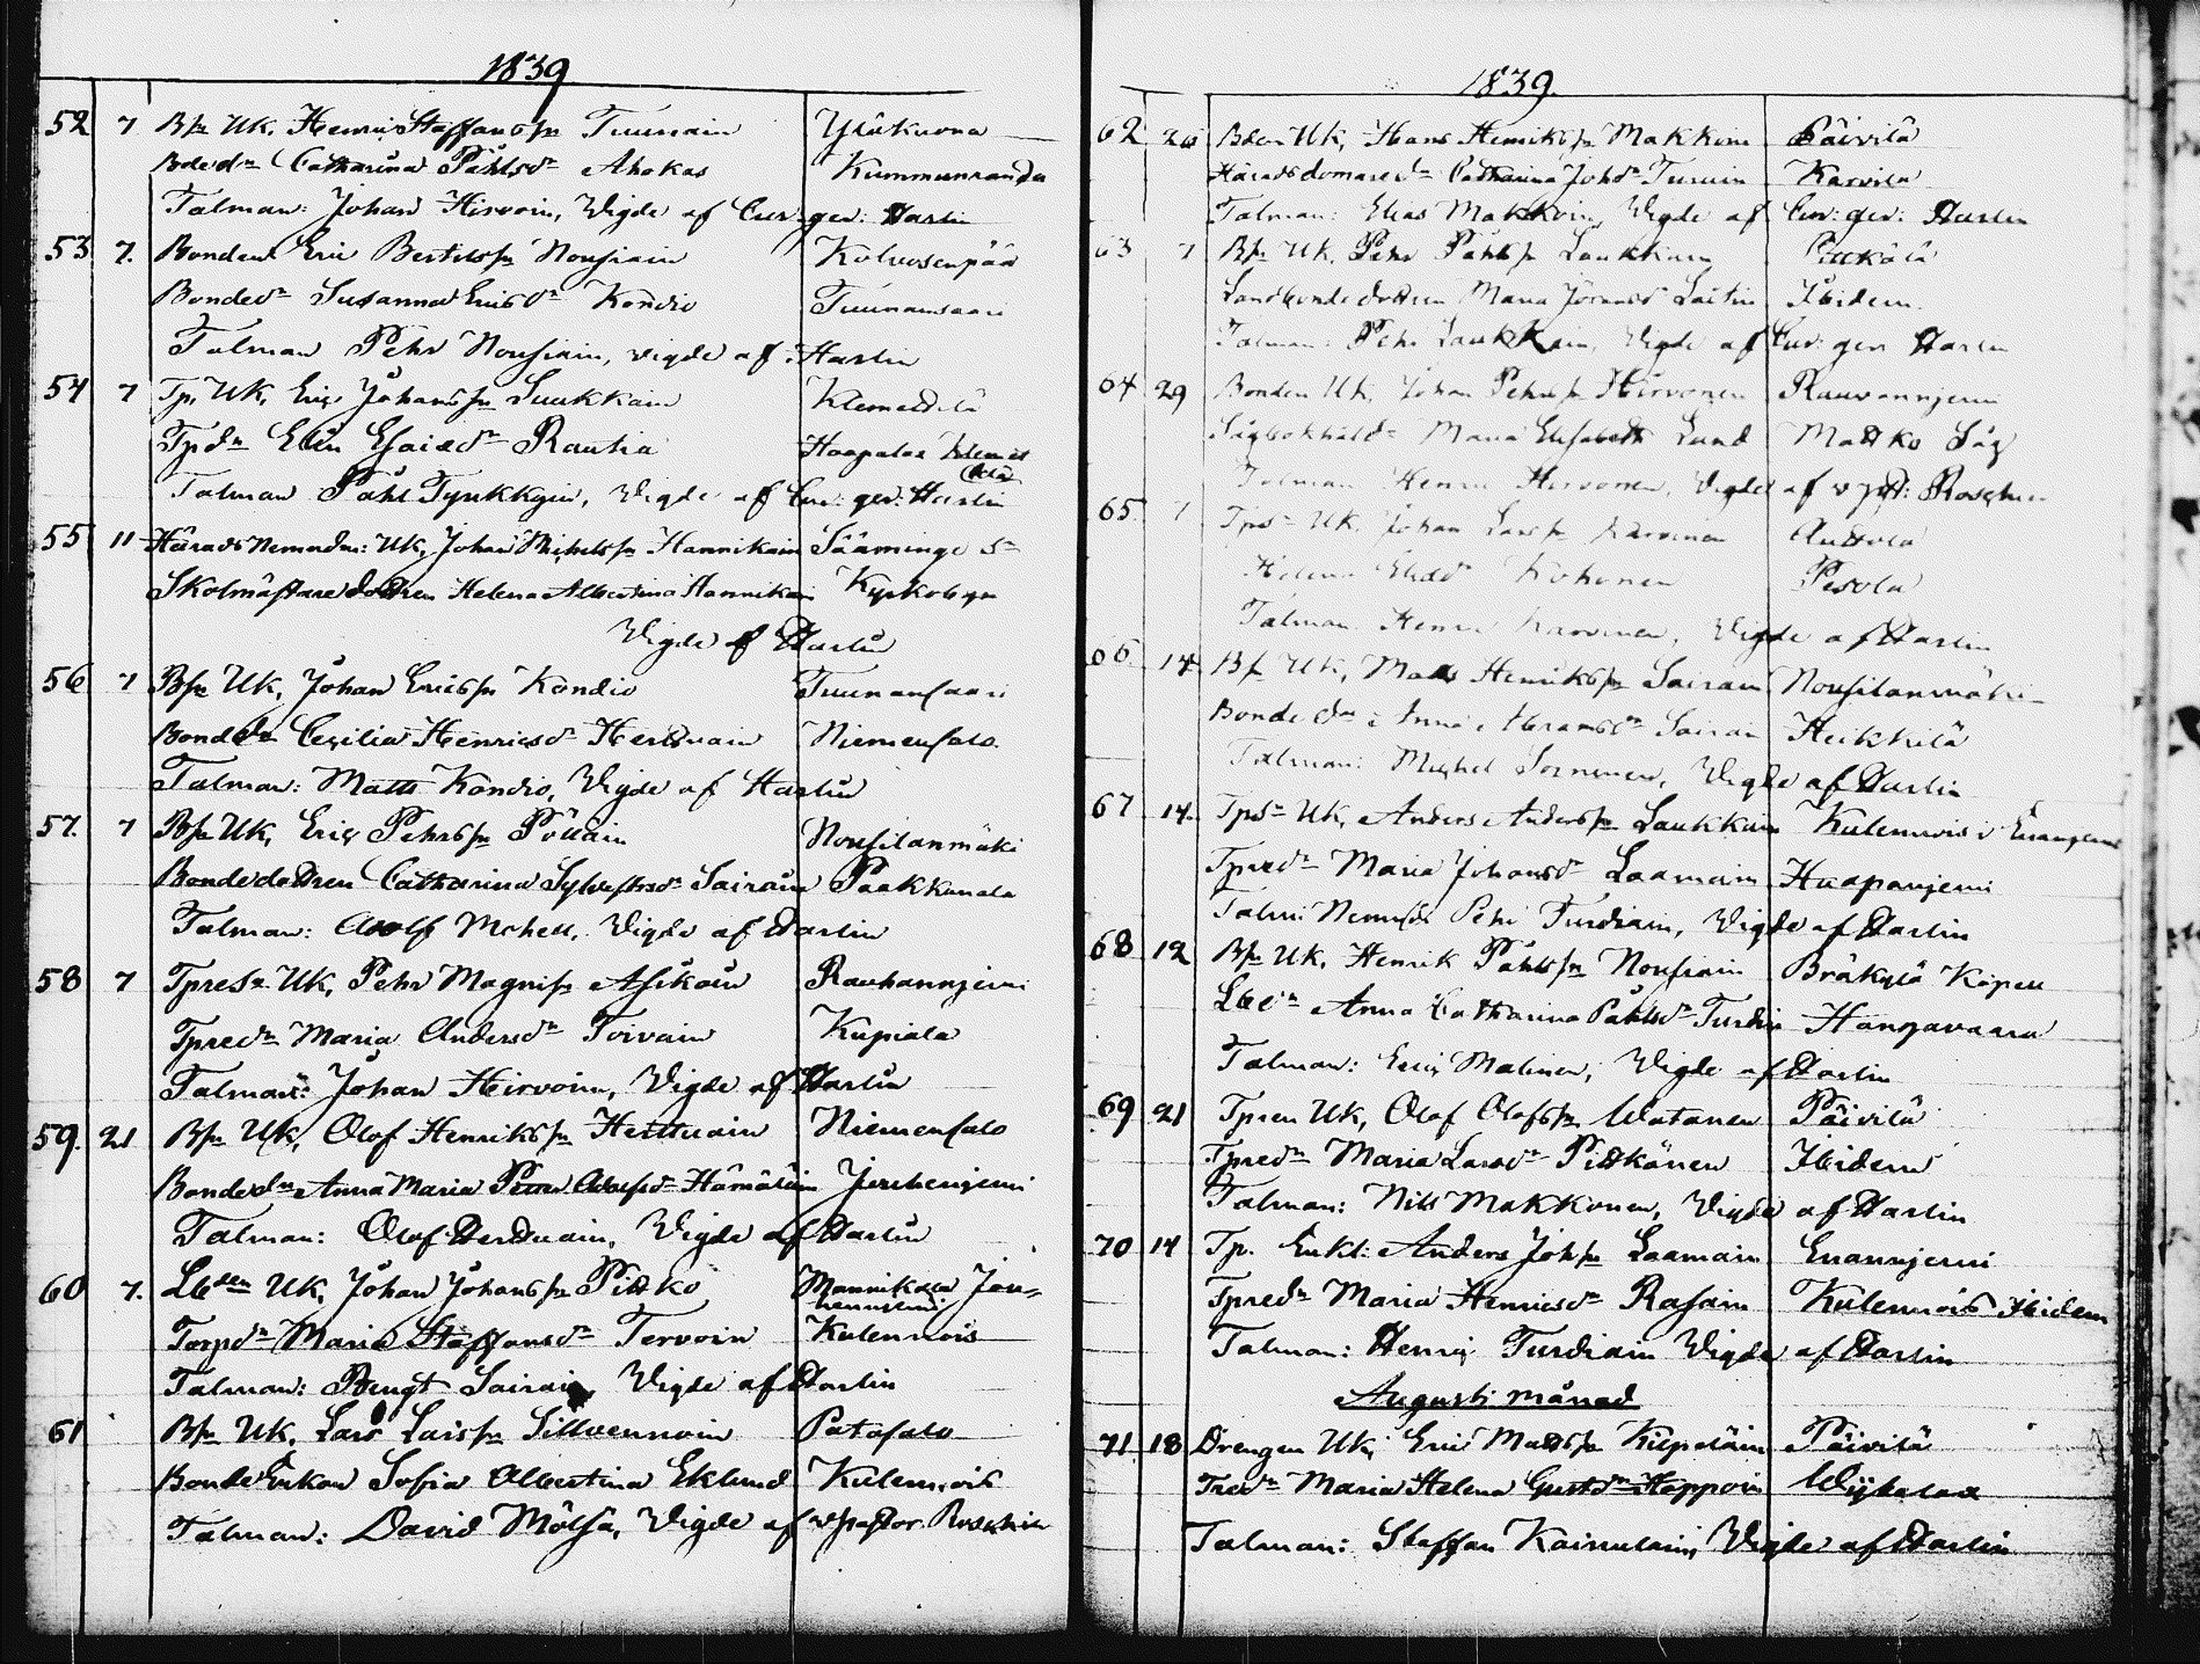 1839
52 7 Bsn UK, Henric Staffansn Tuunain Ylükuona
Boded:n Catharina Påhlsd:r Ahokas Kummunranda
Talman: Johan Hirvoin, Vigde af Cur: ger: Harlin
53 7. Bonden Eric Bertilssn Nousiain Kolvosenpää
Bonded:n Susanna Ericsd:r Kondio Tuunansaari
Talman Pehr Nousiain, vigde af Harlin
54 7 Tp. UK, Eric Johanssn Luukkain Klemettilä
Tpd:n Elin Esaisd:r Rautia Haapalax Klemet
tilä
Talman Påhl Tynkkyin, Vigde af Cur: ger: Harlin
55 11 HäradsNemndm: UK, Johan Michelssn Hannikain Sääminge S:n
Skolmästaredottren Helena Albertina Hannikain Kyrkobyn
Vigde af Harlin
56 7 Bsn UK, Johan Ericssn Kondio Tuunansaari
Bonded:n Cecilia Henricsd:r Herttuain Niemensalo
Talman: Matts Kondio, Vigde af Harlin
57. 7 Bsn UK, Eric Pehrssn Pölläin Nousilanmäki
Bondedottren Catharina Sylvestersd:r Sairain Paakkunala
Talman: Adolf Mchell, Vigde af Harlin
58 7 Tpres:n UK, Pehr Magnissn Asikain Rauhannjemi
Tpred:n Maria Andersd:r Toivain Kupiala
Talman: Johan Hirvoin, Vigde af Harlin
59. 21 Bsn UK, Olof Henrikssn Herttuain Niemensalo
Bonded:n Anna Maria Adolfsd:r Hämäläin Jerchenjemi
Talman: Olof Herttuain, Vigde af Harlin
60 7. Lb:den UK, Johan Johanssn Pitko Mannikala Jou-
hennjemi
Torpd:n Maria Staffansd:r Tervoin Kulennois
Talman: Bengt Sairain, Vigde af Harlin
61 Bsn UK, Lars Larssn Sillvennoin Patasalo
BondeEnkan Sofia Albertina Eklund Kulennois
Talman: David Mölsä, Vigde af vPastor Roschier
1839.
62 26 Bden UK, Hans Henrikssn Makkoin Päivilä
Häradsdomared:n Catharina Johd:r Turuin Karvila
Talman: Elias Makkoin, Vigde af Cur: ger: Harlin
63 7 Bsn UK, Pehr Påhlssn Laukkain Putkälä
Landbondedottren Maria Laitin Ibidem.
Talman: Pehr Laukkain, Vigde af Cur: ger Harlin
64 29 Bonden UK, Johan Pehrssn Hirvonen Rauvannjemi
Sågbokhåld:r Maria Elisabeth Lund Mattko Såg
Talman Henric Hirvonen, Vigde af vPst: Roschier
65. 7 Tps:n UK, Johan Larssn Karvinen Anttola
Helena Eliasd:r Kohonen Pesola
Talman Henric Karvinen, Vigde af Harlin
66. 14 Bsn UK, Mats Henrikssn Sairain Nousilanmäki
Bonded:n Anna Abramsd:r Sairain Heikkilä
Talman: Michel Sornenen, Vigde af Harlin
67 14. Tps:n UK, Anders Anderssn Laukkain Kulennois i Enanjemi
Tpred:n Maria Johansd:r Laamain Haapanjemi
Talm: Nemnd: Pehr Turdiain, Vigde af Harlin
68 12 Bsn UK, Henrik Påhlssn Nousiain Bräkylä Kapell
Lbd:n Anna Catharina Påhlsd:r Turdin Hangavaara
Talman: Eric Malinen, Vigde af Harlin
69 21 Tpren UK, Olof Olofssn Watanen Päivilä
Tpred:n Maria Larsd:r Pitkänen Ibidem
Talman: Nils Makkonen, Vigde af Harlin
70 14 Tp. Enkl: Anders Johssn Laamain Enannjemi
Tpred:n Maria Henricsd:r Rasain Kulennois Ibidem
Talman: Henric Turdiain Vigde af Harlin
Augusti månad
71. 18 Drengen UK, Eric Mattssn Kilpeläin Päivilä
Tred:n Maria Helena Gustd:r Happoin Wykalax
Talman: Staffan Kainulain, Vigde af Harlin